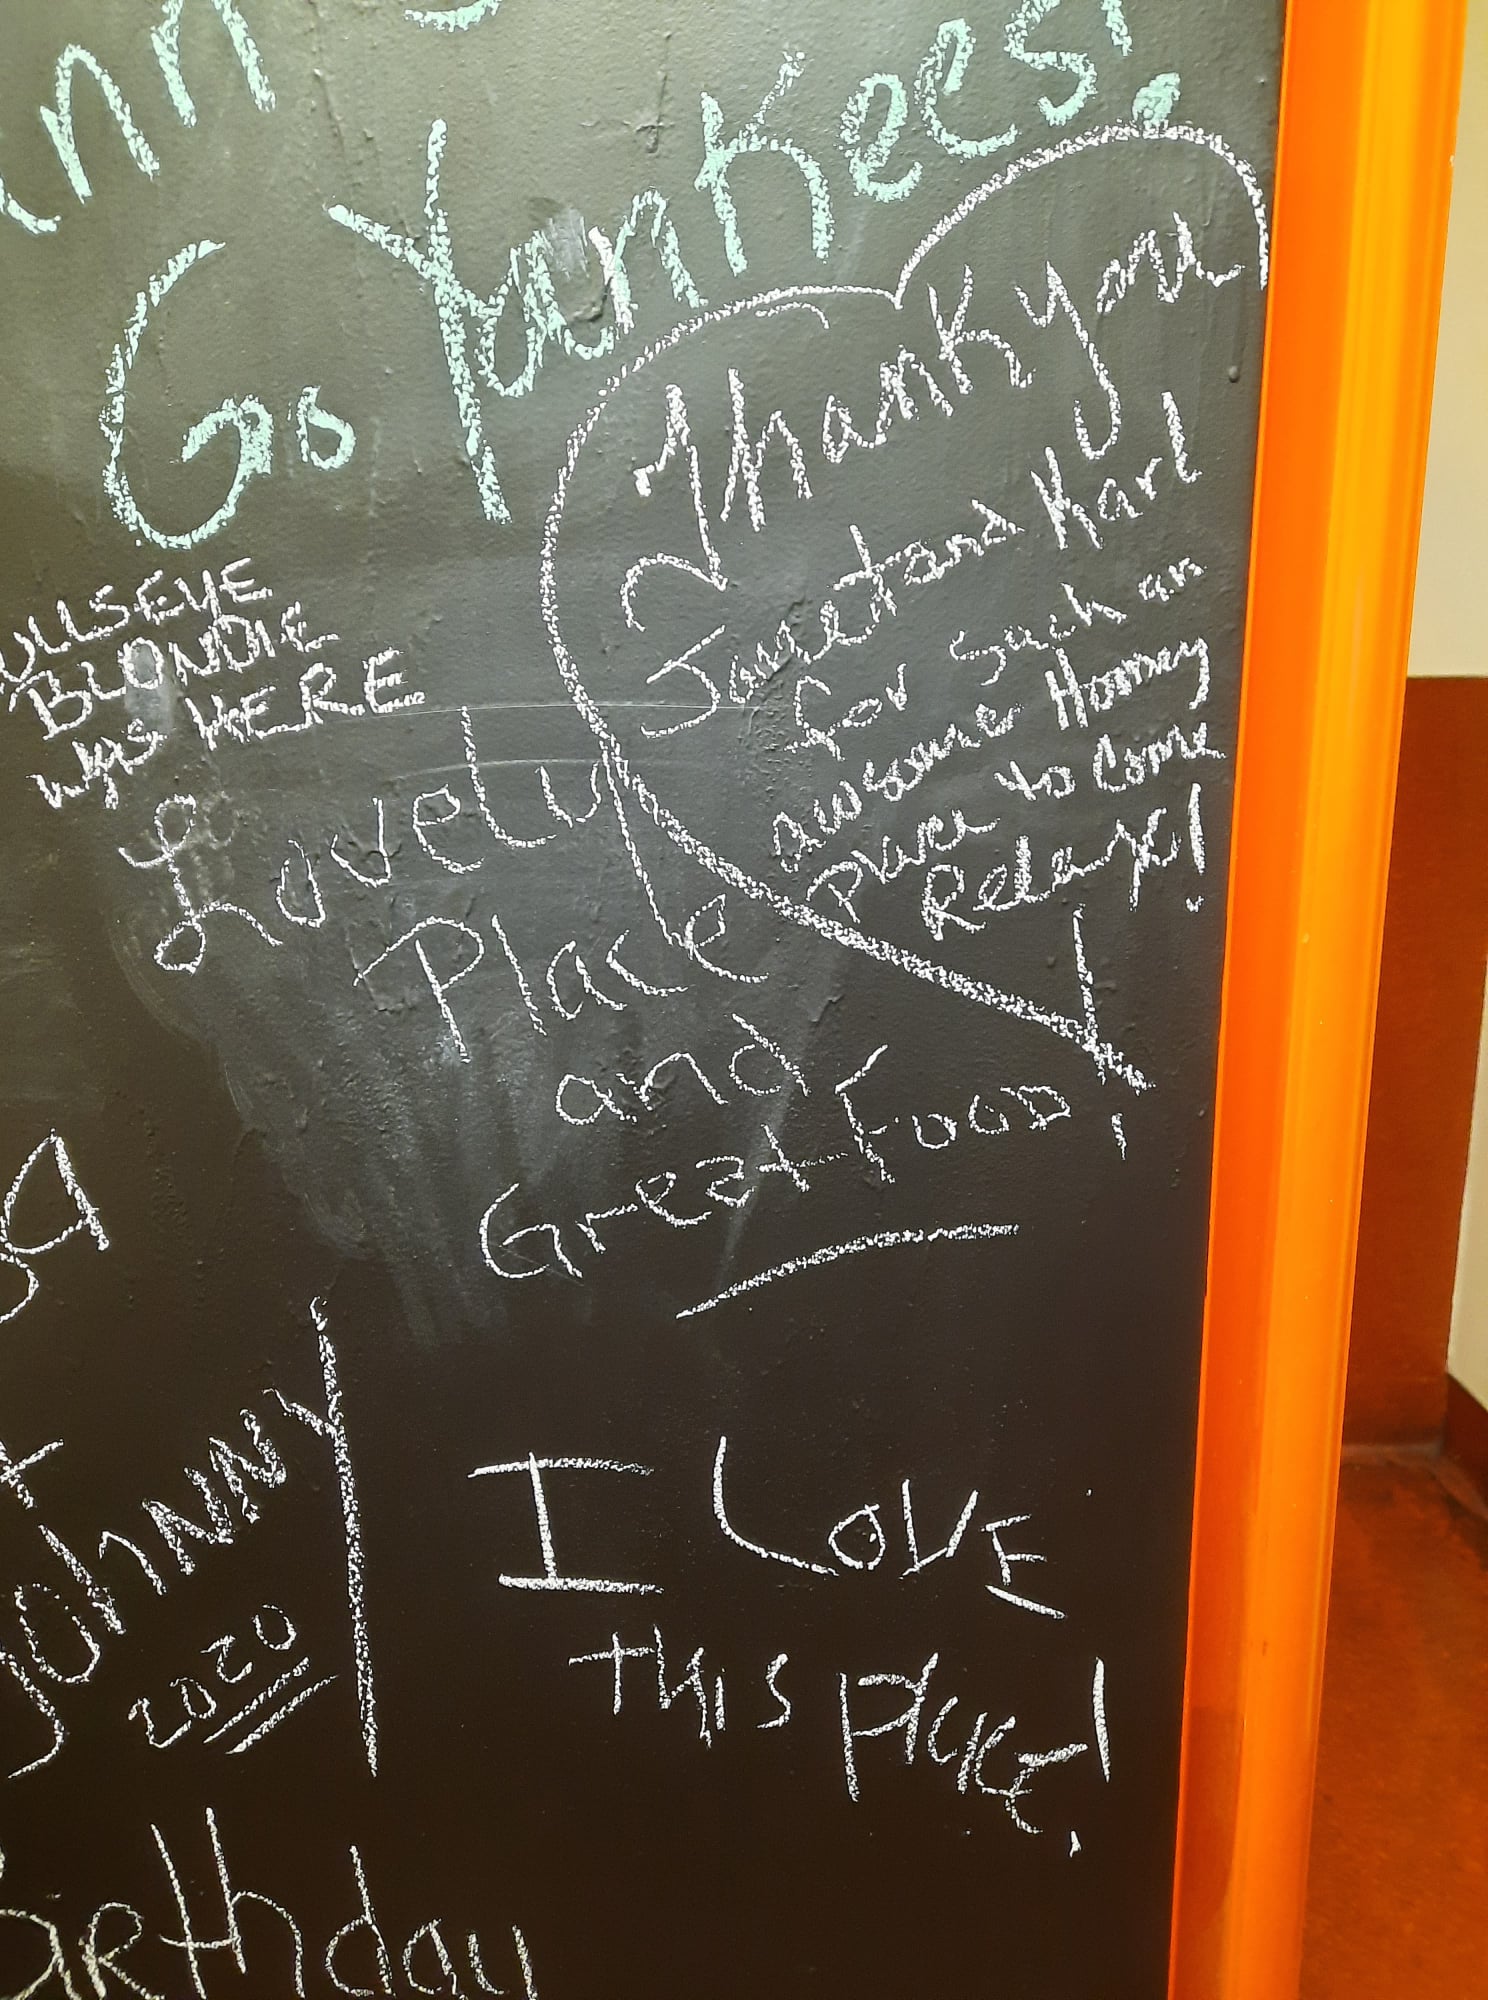 Go Yankees!
Thank you
Janet and Karl
for Such an
awsome Homey
Place to Come
Relax!
BLONDIE
was HERE
Lovely
Place
and
Great Food!
JOHNNY
2020
I LOVE
this place!
Birthday